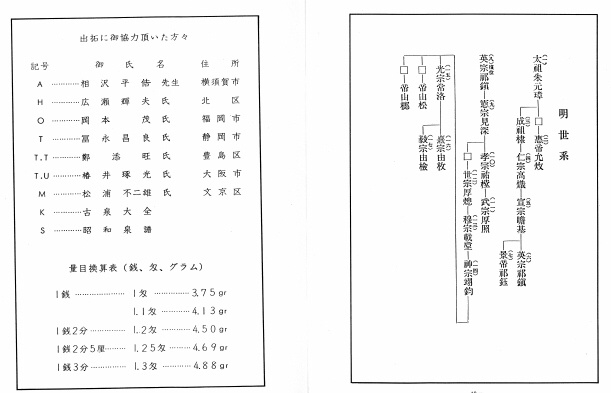 出拓に御協力頂いた方々
記号 御氏名 住所
A ………… 相沢平佶先生 横須賀市
H ………… 広瀬輝夫氏 北区
O ………… 岡本茂氏 福岡市
T ………… 冨永昌良氏 静岡市
T.T ………… 鄭添旺氏 豊島区
T.U ………… 椿井琢光氏 大阪市
M ………… 松浦不二雄氏 文京区
K ………… 古泉大全
S ………… 昭和泉譜
量目換算表(銭、匁、グラム)
1銭 ………… 1匁 ………… 3.75gr
1.1匁 ………… 4.13gr
1銭2分 ………… 1.2匁 ………… 4.50gr
1銭2分5厘 ………… 1.25匁 ………… 4.69gr
1銭3分 ………… 1.3匁 ………… 4.88gr
明世系
(一)太祖朱元璋
□ (二)恵帝允炆
(三)成祖棣 (四)仁宗高熾 (五)宣宗瞻基 (六)英宗祁鎮
(七)景帝祁鈺
(八)復位 英宗祁鎮 (九)憲宗見深 (一〇)孝宗祐樘 (一一)武宗厚照
□ (一二)世宗厚熜 (一三)穆宗載垕 (一四)神宗翊鈞
(一五)光宗常洛 (一六)熹宗由校
(一七)毅宗由検
□ 帝由松
□ 帝由榔